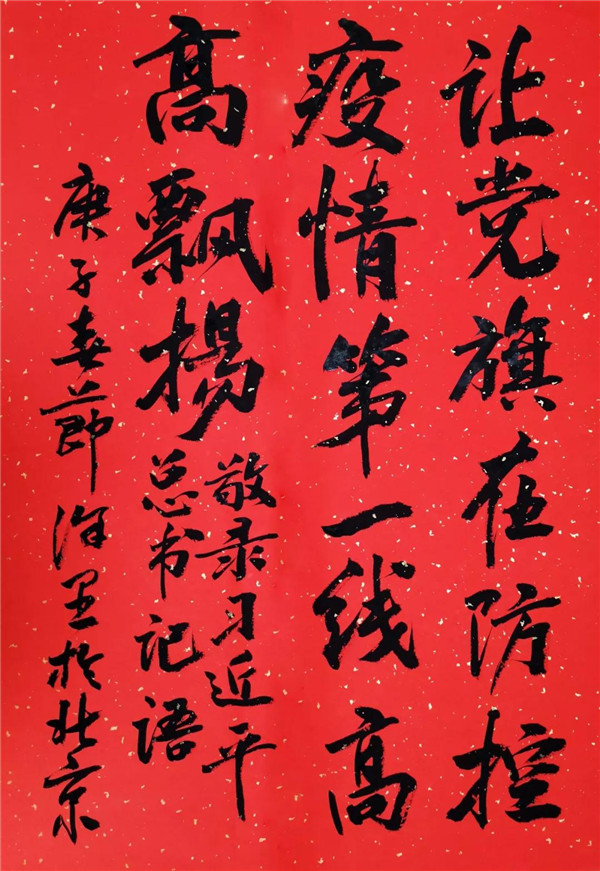 让党旗在防控
疫情第一线高
高飘扬
敬录习近平
总书记语
庚子春节 里于北京